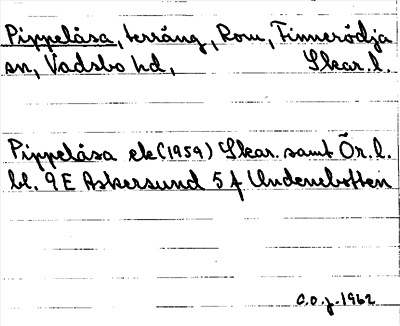 Pippelåsa, terräng, Rom, Finnerödja
sn, Vadsbo hd, Skar.l.
Pippelåsa ek (1959) Skar. samt Ör.l.
bl. 9E Askersund 5f Undenebotten
C.O.J. 1962